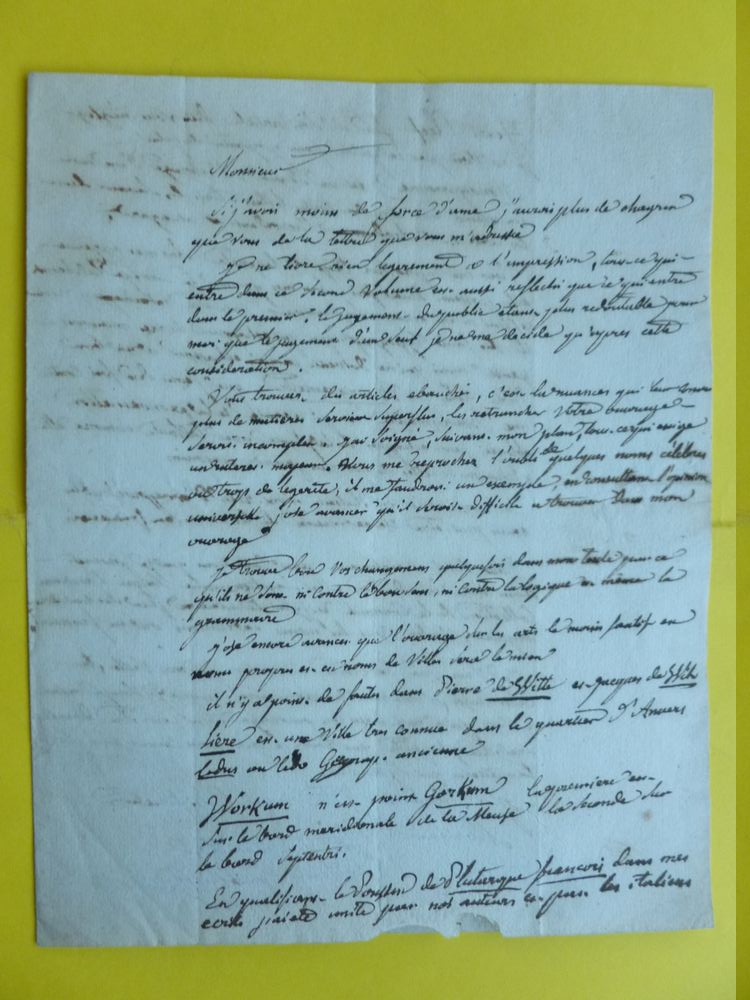 Monsieur
Si j'avois moins de force d'ame j'aurois plus de chagrin
que vous de la lettre que vous m'adressé
Je ne livre rien legerement a l'impression, tous ce qui
entre dans ce second Volume est aussi reflechi que ce qui entre
dans le premier. le jugement du public etant plus redoutable pour
moi que le jugement d'un seul je ne me decide qu'apres cette
consideration.
Vous trouvez des articles ebauchés, c'est la nuances qui leur
plus de matieres seroient superflus, les retrancher Votre ouvrage
seroit incomplet. j'ai soigné, suivant mon plan, tous ce qui exige
un caractere majeur. Vous me reprochez l'oubli de quelques noms célèbres
ou trops de legereté, il me faudroit un exemple, en consultant l'opinion
universelle j'ose avancer qu'il seroit difficile a trouver dans mon
ouvrage
Je trouve bon Vos changemens quelquefois dans mon texte pour ce
qu'ils ne sont ni contre le bon sens, ni contre la logique et même la
grammaire
j'ose encore avancer que l'ouvrage sur les arts le moin fautif en
noms propres et en noms de Villes sera le mien
il n'y a point de fautes dans Pierre de Witte et Jacques de Wit
Liere est une Ville tres connue dans le quartier d'Anvers
Ledus ou Ledo Geograp. ancienne
Workum n'est point Gorkum la premiere est
sur le bord meridionale de la Meuse la seconde sur
le bord septentri.
En qualifiant le Poussin de Plutarque francois dans mes
ecrits j'ai eté imité par nos auteurs et par les italiens